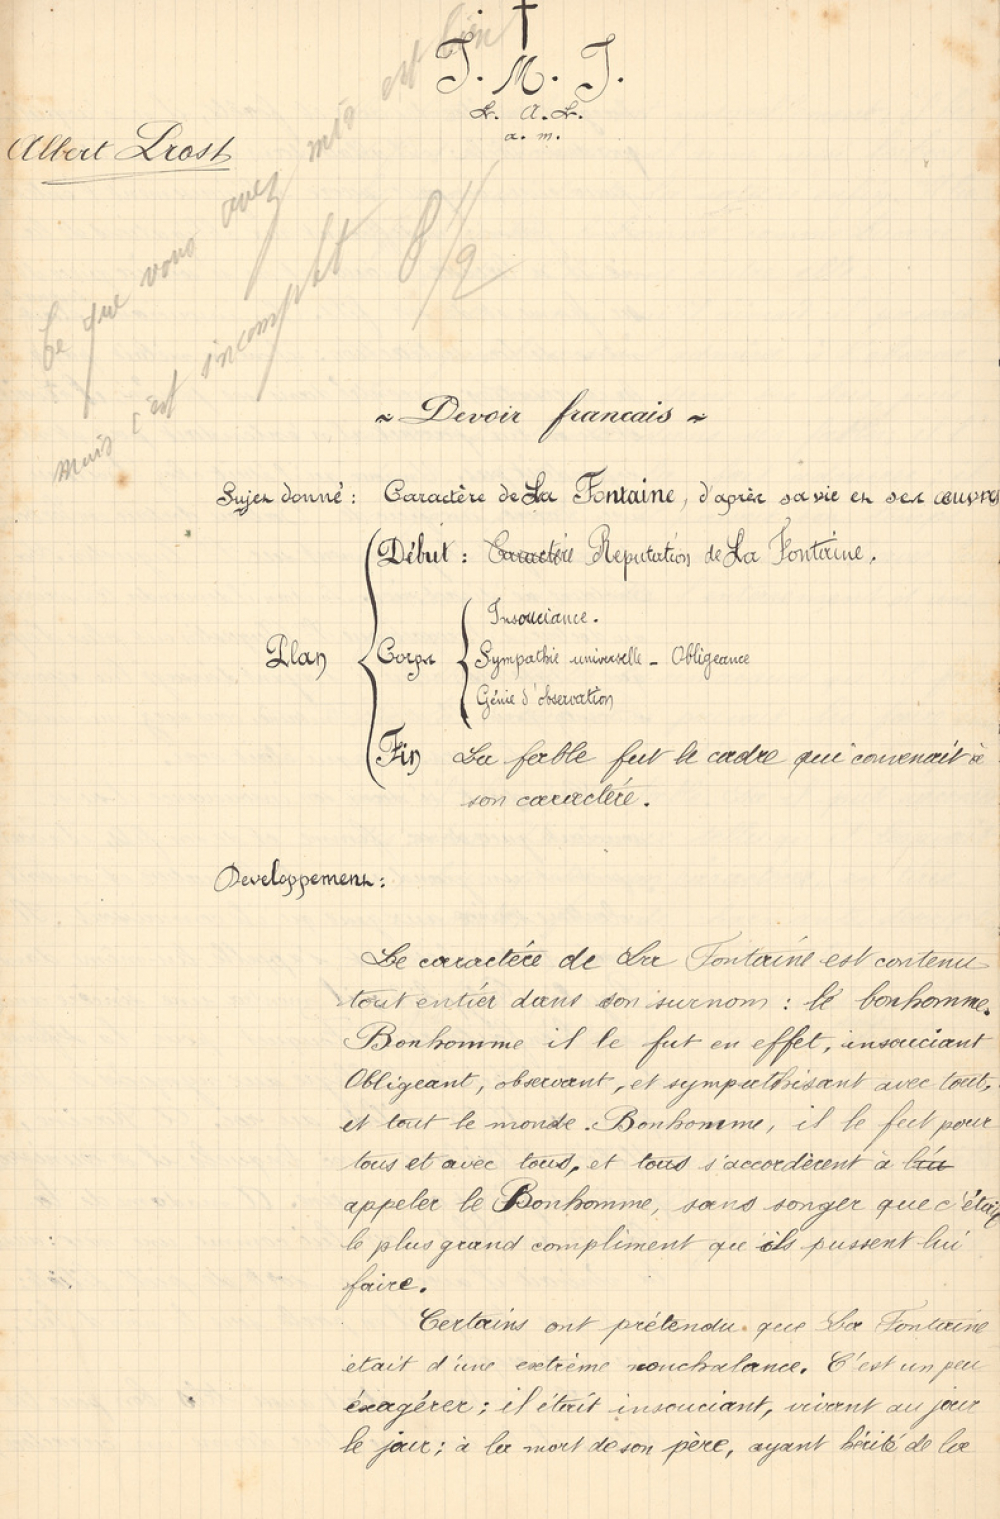 J. M. J.
L. A. L.
a. m.
Albert Prost
Ce que vous avez mis est bien
mais c'est incomplet 8 1/2
~ Devoir francais ~
Sujet donné : Caractère de La Fontaine, d'après sa vie et ses œuvres
Début : Caractère Reputation de La Fontaine.
Insouciance.
Plan Corps Sympathie universelle - Obligeance
Génie d'observation
Fin La fable fut le cadre qui convenait à
son caractère.
Developpement :
Le caractère de La Fontaine est contenu
tout entier dans son surnom : le bonhomme.
Bonhomme il le fut en effet, insouciant
Obligeant, observant, et sympathisant avec tout,
et tout le monde. Bonhomme, il le fut pour
tous et avec tous, et tous s'accordèrent à
appeler le Bonhomme, sans songer que c'était
le plus grand compliment que ils pussent lui
faire.
Certains ont prétendu que La Fontaine
était d'une extrème nonchalance. C'est un peu
éxagérer ; il était insouciant, vivant au jour
le jour ; à la mort de son père, ayant hérité de la